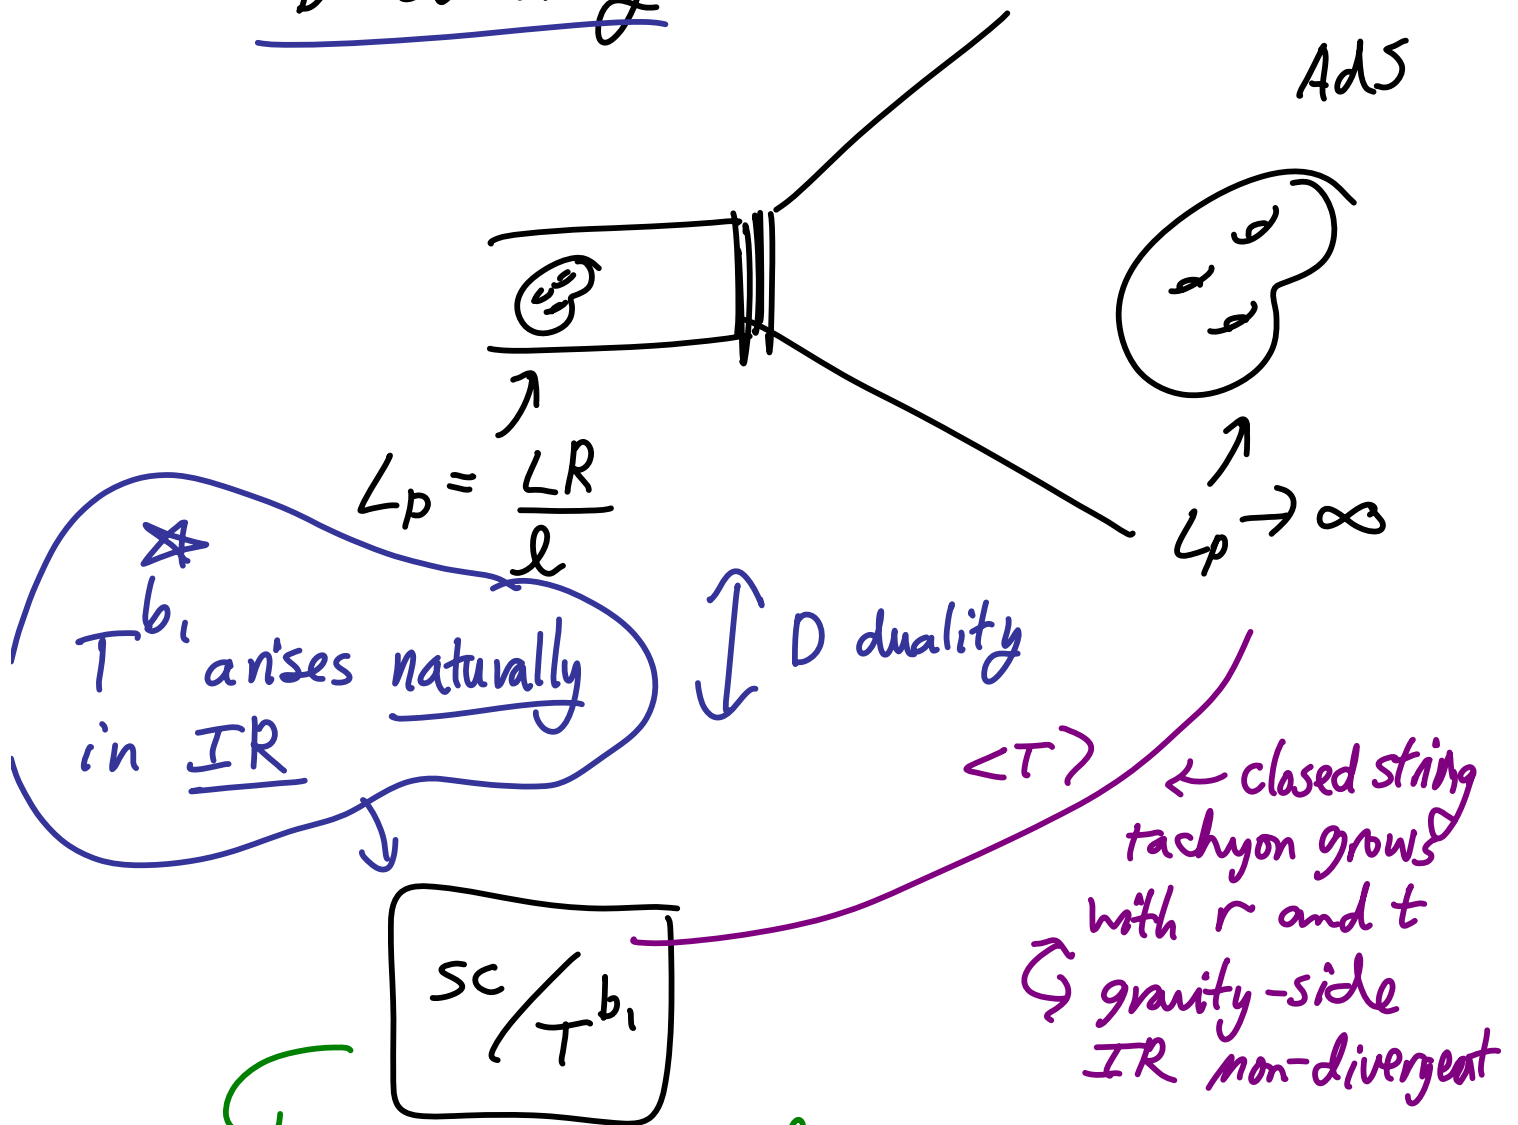 AdS
Lp = LR/ℓ
Lp → ∞
T^b1 arises naturally
in IR
D duality
<T>
← closed string
tachyon grows
with r and t
gravity-side
IR non-divergent
SC/T^b1